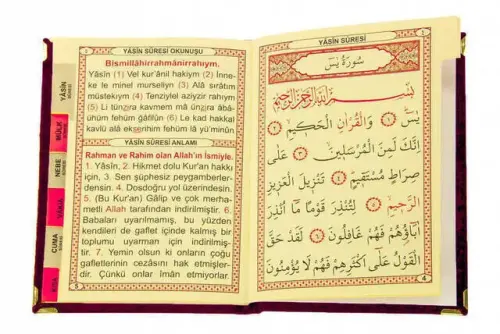 YÂSİN SÛRESİ OKUNUŞU
Bismillâhirrahmânirrahıym.
Yâsîn (1) Vel kur'ânil hakiym (2) İnne-
ke le minel murseliyn (3) Alâ sırâtım
müstekıym (4) Tenziylel aziyzir rahıym
(5) Li tünzira kavmem mâ ünzira âbâ-
ühüm fehüm gâfilûn (6) Le kad hakkal
kavlü alâ ekserihim fehüm lâ yü'minûn
YÂSİN SÛRESİ ANLAMI
Rahman ve Rahim olan Allah'ın İsmiyle.
1. Yâsîn, 2. Hikmet dolu Kur'an hakkı
için, 3. Sen şüphesiz peygamberler-
densin. 4. Dosdoğru yol üzerindesin.
5. (Bu Kur'an) Gâlip ve çok merha-
metli Allah tarafından indirilmiştir. 6.
Babaları uyarılmamış, bu yüzden
kendileri de gaflet içinde kalmış bir
toplumu uyarman için indirilmiş-
tir. 7. Yemin olsun ki onların çoğu
gafletlerinin cezasını hak etmişler-
dir. Çünkü onlar îman etmiyorlar.
5
YÂSİN
MÜLK
NEBE
VAKIA
CUMA
YÂSİN SÛRESİ
سُورَةُ يٰسٓ
بِسْمِ اللهِ الرَّحْمٰنِ الرَّحِيمِ
يٰسٓ ﴿١﴾ وَالْقُرْاٰنِ الْحَكِيمِ ﴿٢﴾
اِنَّكَ لَمِنَ الْمُرْسَلِينَ ﴿٣﴾ عَلٰى
صِرَاطٍ مُسْتَقِيمٍ ﴿٤﴾ تَنْزِيلَ الْعَزِيزِ
الرَّحِيمِ ﴿٥﴾ لِتُنْذِرَ قَوْمًا مَٓا اُنْذِرَ
اٰبَٓاؤُهُمْ فَهُمْ غَافِلُونَ ﴿٦﴾ لَقَدْ حَقَّ
الْقَوْلُ عَلٰٓى اَكْثَرِهِمْ فَهُمْ لَا يُؤْمِنُونَ
4